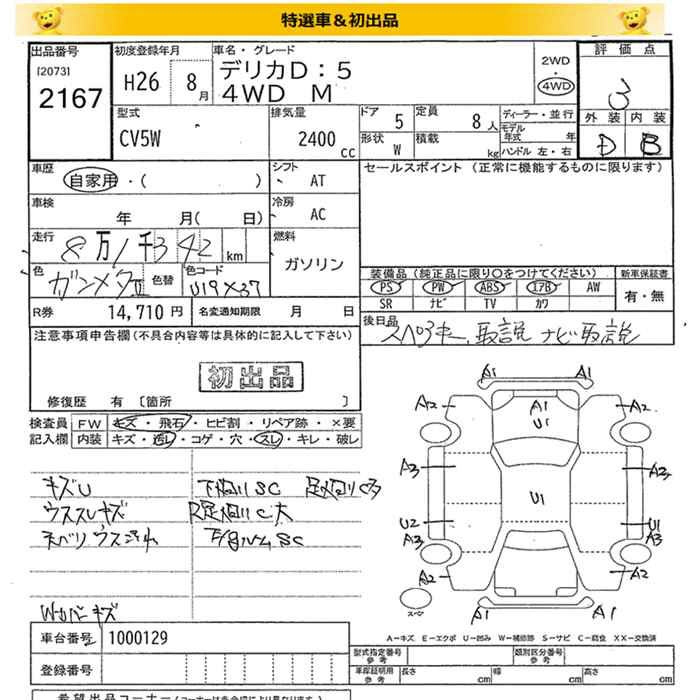 特選車＆初出品
出品番号 初度登録年月 車名・グレード 評価点
[2073] 2167 H26 8月 デリカD：5 2WD 4WD 3
4WD M
外装 内装
D B
型式 排気量 ドア 定員 ディーラー・並行
CV5W 2400cc 5 8人 モデル年式 年
形状 積載 ハンドル 左・右
W kg
車歴 シフト セールスポイント (正常に機能するものに限ります)
自家用・( ) AT
車検 冷房
年 月( 日) AC
走行 燃料
8万1千342km ガソリン
色 色替 色コード 装備品(純正品に限り○をつけてください) 新車保証書
ガンメタⅡ U19×37 PS PW ABS エアB AW 有・無
SR ナビ TV カワ
R券 14,710円 名変通知期限 月 日 後日品
スペアキー、取説 ナビ取説
注意事項申告欄(不具合内容等は具体的に記入して下さい)
初出品
修復歴 有 [箇所 ]
検査員記入欄 FW キズ・飛石・ヒビ割・リペア跡・×要
内装 キズ・汚レ・コゲ・穴・スレ・キレ・破レ
キズU 下廻りSC
ウススレキズ R足廻りC大
W・カバーキズ
A1 A1
A2 A1 A2
U1
A3 A3
U1
U2 U1
A3 A3
A2 A2
A1 A1
スペア
A－キズ E－エクボ U－凹み W－補修跡 S－サビ C－腐食 XX－交換済
車台番号 1000129
型式指定番号 参考 類別区分番号 参考
登録番号
車庫証明用 参考 長さ cm 幅 cm 高さ cm
希望出品コーナー